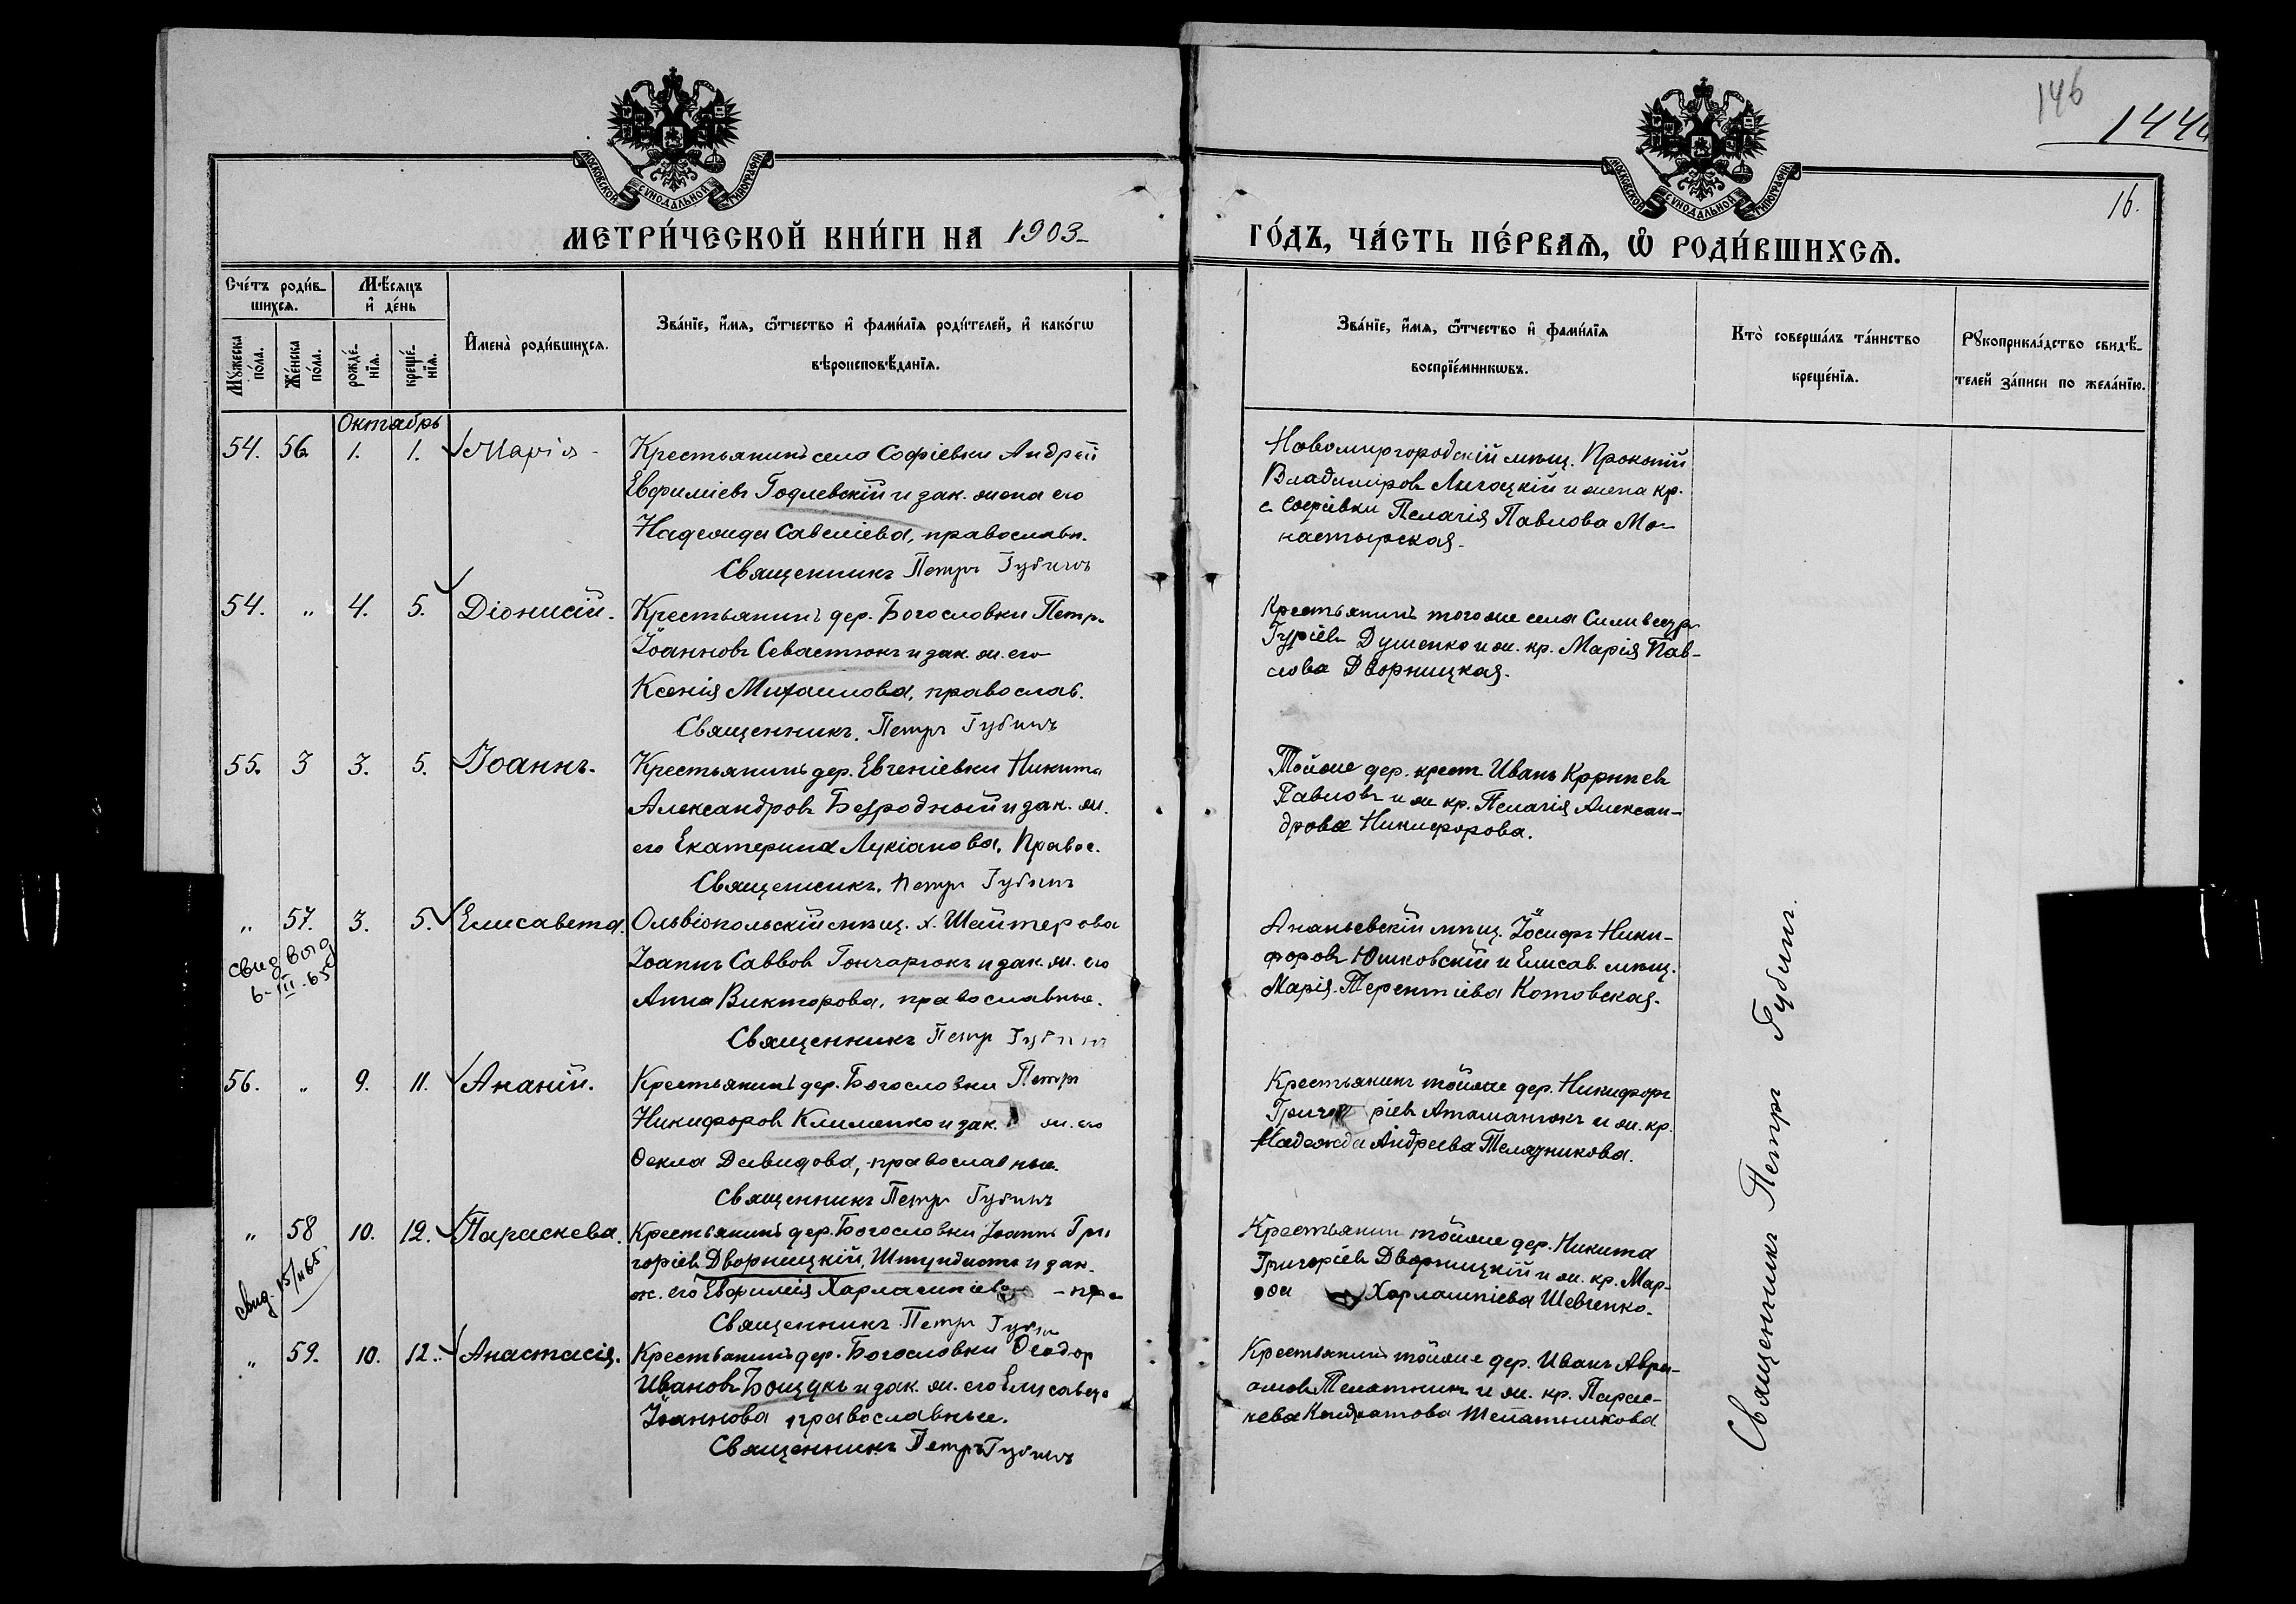 146
144
16.
МОСКОВСКОЙ СѴНОДАЛЬНОЙ ТИПОГРАФІИ
МОСКОВСКОЙ СѴНОДАЛЬНОЙ ТИПОГРАФІИ
МЕТРИ́ЧЕСКОЙ КНИ́ГИ НА 1903
ГО́ДЪ, ЧА́СТЬ ПЕ́РВАѦ, Ѡ РОДИ́ВШИХСѦ.
Сче́тъ роди́в-
шихсѧ.
Мѣ́сѧцъ
и҆ де́нь
Мꙋ́жеска по́ла.
Же́нска по́ла.
рожде́-
нїѧ.
креще́-
нїѧ.
И҆мена̀ роди́вшихсѧ.
Зва́нїе, и҆́мѧ, ѻ҆́тчество и҆ фами́лїѧ роди́телей, и҆ како́гѡ
вѣроисповѣ́данїѧ.
Зва́нїе, и҆́мѧ, ѻ҆́тчество и҆ фами́лїѧ
воспрїе́мникѡвъ.
Кто̀ соверша́лъ та́инство
креще́нїѧ.
Рꙋкоприкла́дство свидѣ́-
телей за́писи по жела́нїю.
Октябрь
54. 56 1. 1. Марія
Крестьянинъ села Софіевки Андрей
Евфиміевъ Годлевскій и зак. жена его
Надежда Савеліева, православн.
Священникъ Петръ Губинъ
Новомиргородскій мѣщ. Прокопій
Владиміровъ Лигоцкій и жена кр.
с. Софіевки Пелагія Павлова Мо-
настырская.
54. " 4. 5. Діонисій.
Крестьянинъ дер. Богословки Петръ
Іоанновъ Севастюкъ и зак. ж. его
Ксенія Михаилова, православ.
Священникъ. Петръ Губинъ
Крестьянинъ того же села Сильвестр
Гуріевъ Душенко и ж. кр. Марія Пав-
лова Дворницкая.
55. 3 3. 5. Іоаннъ.
Крестьянинъ дер. Евгеніевки Никита
Александровъ Безродный и зак. ж.
его Екатерина Лукіанова, Правос.
Священникъ. Петръ Губинъ
Той же дер. крест. Иванъ Корнѣев
Павловъ и ж. кр. Пелагія Алексан-
дрова Никифорова.
" 57. 3. 5. Елисавета.
свид выд
6-III-65
Ольвіопольскій мѣщ. х. Шейтерова
Іоаннъ Саввов Гончарюкъ и зак. ж. его
Анна Викторова, православные.
Священникъ Петръ Губинъ
Ананьевскій мѣщ. Іосифъ Ники-
форовъ Юшковскій и Елисав. мѣщ.
Марія Терентіева Котовская.
56. " 9. 11. Ананій.
Крестьянинъ дер. Богословки Петръ
Никифоров Клименко и зак. ж. его
Ѳекла Давидова, православные.
Священникъ Петръ Губинъ
Крестьянинъ той же дер. Никифоръ
Григоріевъ Атаманюкъ и ж. кр.
Надежда Андреева Телятникова.
" 58 10. 12. Параскева.
свид. 15/II 65
Крестьянинъ дер. Богословки Іоаннъ Гри
горіевъ Дворницкій, Штундистъ и зак.
ж. его Евфимія Харлампіева - пра
Священникъ Петръ Губин
Крестьянин той же дер. Никита
Григоріевъ Дворницкій и ж. кр. Мар-
ѳа Харлампіева Шевченко.
" 59. 10. 12. Анастасія.
Крестьянинъ дер. Богословки Ѳеодор
Ивановъ Бощукъ и зак. ж. его Елисавета
Іоаннова православные.
Священникъ Петръ Губинъ
Крестьянинъ той же дер. Иванъ Авра-
амовъ Телятник и ж. кр. Парас-
кева Кондратова Телятникова
Священникъ Петръ Губинъ.